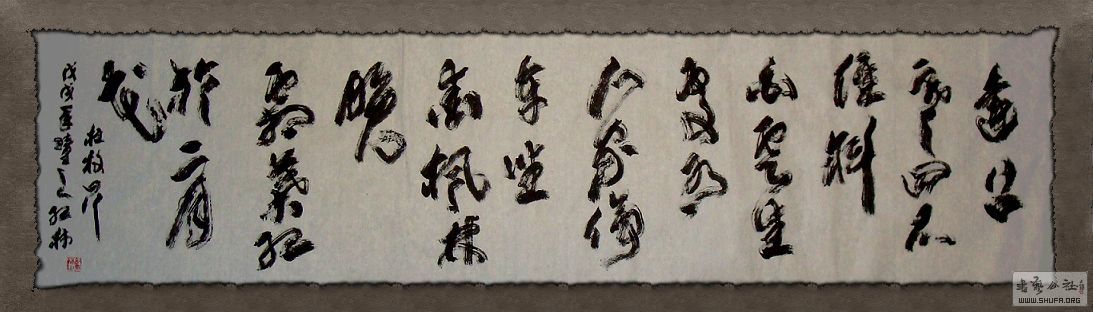 遠上
寒山石
徑斜
白雲生
處有
人家停
車坐
愛楓林
晚
霜葉紅
於二月
花
杜牧山行
戊戌
書藝公社
WWW.SHUFA.ORG